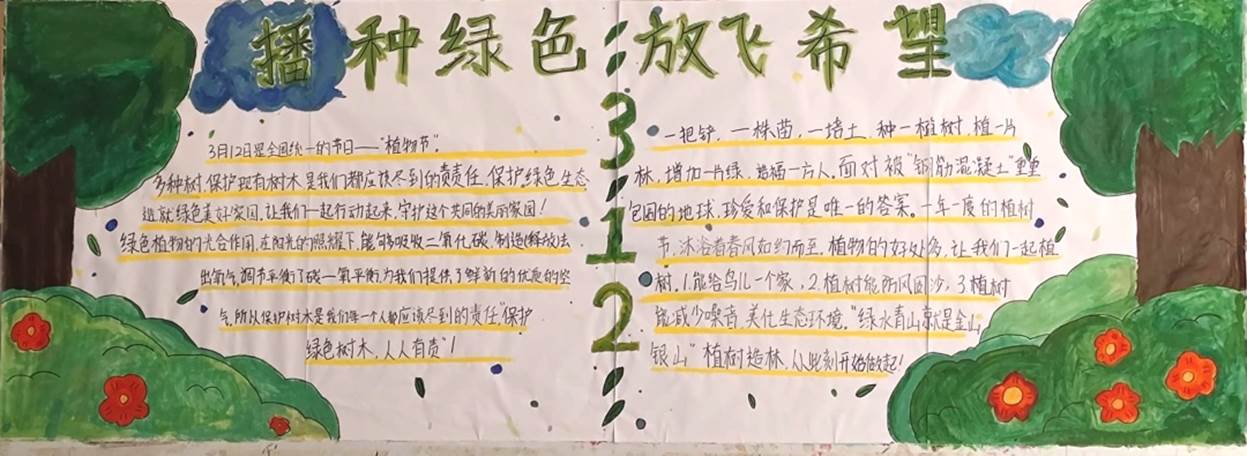 播种绿色 放飞希望
3月12日是全国统一的节日——"植物节"。
多种树,保护现有树木是我们都应该尽到的责责任,保护绿色生态
造就绿色美好家园,让我们一起行动起来,守护这个共同的美丽家园!
绿色植物的光合作用,在阳光的照耀下,能够吸收二氧化碳,制造释放法
出氧气,调节平衡了碳一氧平衡,为我们提供了鲜新的优质的空
气,所以保护树木是我们每一个人都应该尽到的责任"保护
绿色树木,人人有责"!
3
1
2
一把铲,一株苗,一培土,种一植树,植一片
林,增加一片绿,造福一方人。面对被"钢筋混凝土"重重
包围的地球,珍爱和保护是唯一的答案。一年一度的植树
节,沐浴着春风如约而至,植物的好处多,让我们一起植
树。1.能给鸟儿一个家,2.植树能防风固沙,3.植树
能减少噪音,美化生态环境。"绿水青山就是金山
银山"植树造林,从此刻开始做起!